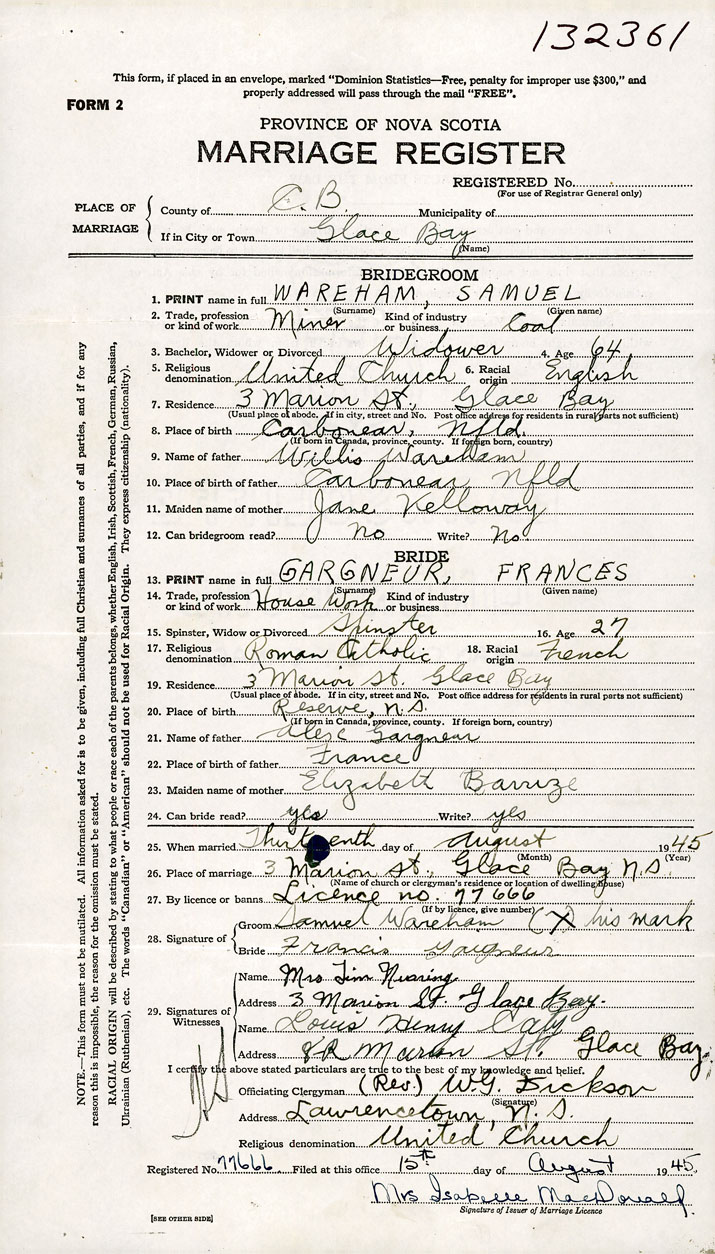 132361
This form, if placed in an envelope, marked "Dominion Statistics—Free, penalty for improper use $300," and
properly addressed will pass through the mail "FREE".
FORM 2
PROVINCE OF NOVA SCOTIA
MARRIAGE REGISTER
REGISTERED No.
(For use of Registrar General only)
PLACE OF MARRIAGE
County of C. B. Municipality of
If in City or Town Glace Bay
(Name)
BRIDEGROOM
1. PRINT name in full WAREHAM, SAMUEL
(Surname) (Given name)
2. Trade, profession or kind of work Miner Kind of industry or business Coal
3. Bachelor, Widower or Divorced Widower 4. Age 64
5. Religious denomination United Church 6. Racial origin English
7. Residence 3 Marion St., Glace Bay
(Usual place of abode. If in city, street and No. Post office address for residents in rural parts not sufficient)
8. Place of birth Carbonear, Nfld.
(If born in Canada, province, county. If foreign born, country)
9. Name of father Willis Wareham
10. Place of birth of father Carbonear Nfld
11. Maiden name of mother Jane Kelloway
12. Can bridegroom read? no Write? No.
BRIDE
13. PRINT name in full GARGNEUR, FRANCES
(Surname) (Given name)
14. Trade, profession or kind of work House Work Kind of industry or business
15. Spinster, Widow or Divorced Spinster 16. Age 27
17. Religious denomination Roman Catholic 18. Racial origin French
19. Residence 3 Marion St. Glace Bay
(Usual place of abode. If in city, street and No. Post office address for residents in rural parts not sufficient)
20. Place of birth Reserve, N.S.
(If born in Canada, province, county. If foreign born, country)
21. Name of father Alex Gargneur
22. Place of birth of father France
23. Maiden name of mother Elizabeth
24. Can bride read? yes Write? yes
25. When married Thirteenth day of August 1945
(Month) (Year)
26. Place of marriage 3 Marion St., Glace Bay N.S.
(Name of church or clergyman's residence or location of dwelling house)
27. By licence or banns Licence no. 77666
(If by licence, give number)
28. Signature of
Groom Samuel Wareham (X) his mark
Bride Francis Gargneur
29. Signatures of Witnesses
Name Mrs Jim Nearing
Address 3 Marion St. Glace Bay.
Name Louis Henry
Address 8R Marion St. Glace Bay.
I certify the above stated particulars are true to the best of my knowledge and belief.
Officiating Clergyman (Rev.) W.G. Dickson
(Signature)
Address Lawrencetown, N.S.
Religious denomination United Church
Registered No. 77666 Filed at this office 15th day of August 1945.
Mrs Isabelle MacDonald.
Signature of Issuer of Marriage Licence
[SEE OTHER SIDE]
NOTE.—This form must not be mutilated. All information asked for is to be given, including full Christian and surnames of all parties, and if for any
reason this is impossible, the reason for the omission must be stated.
RACIAL ORIGIN will be described by stating to what people or race each of the parents belongs, whether English, Irish, Scottish, French, German, Russian,
Ukrainian (Ruthenian), etc. The words "Canadian" or "American" should not be used for Racial Origin. They express citizenship (nationality).